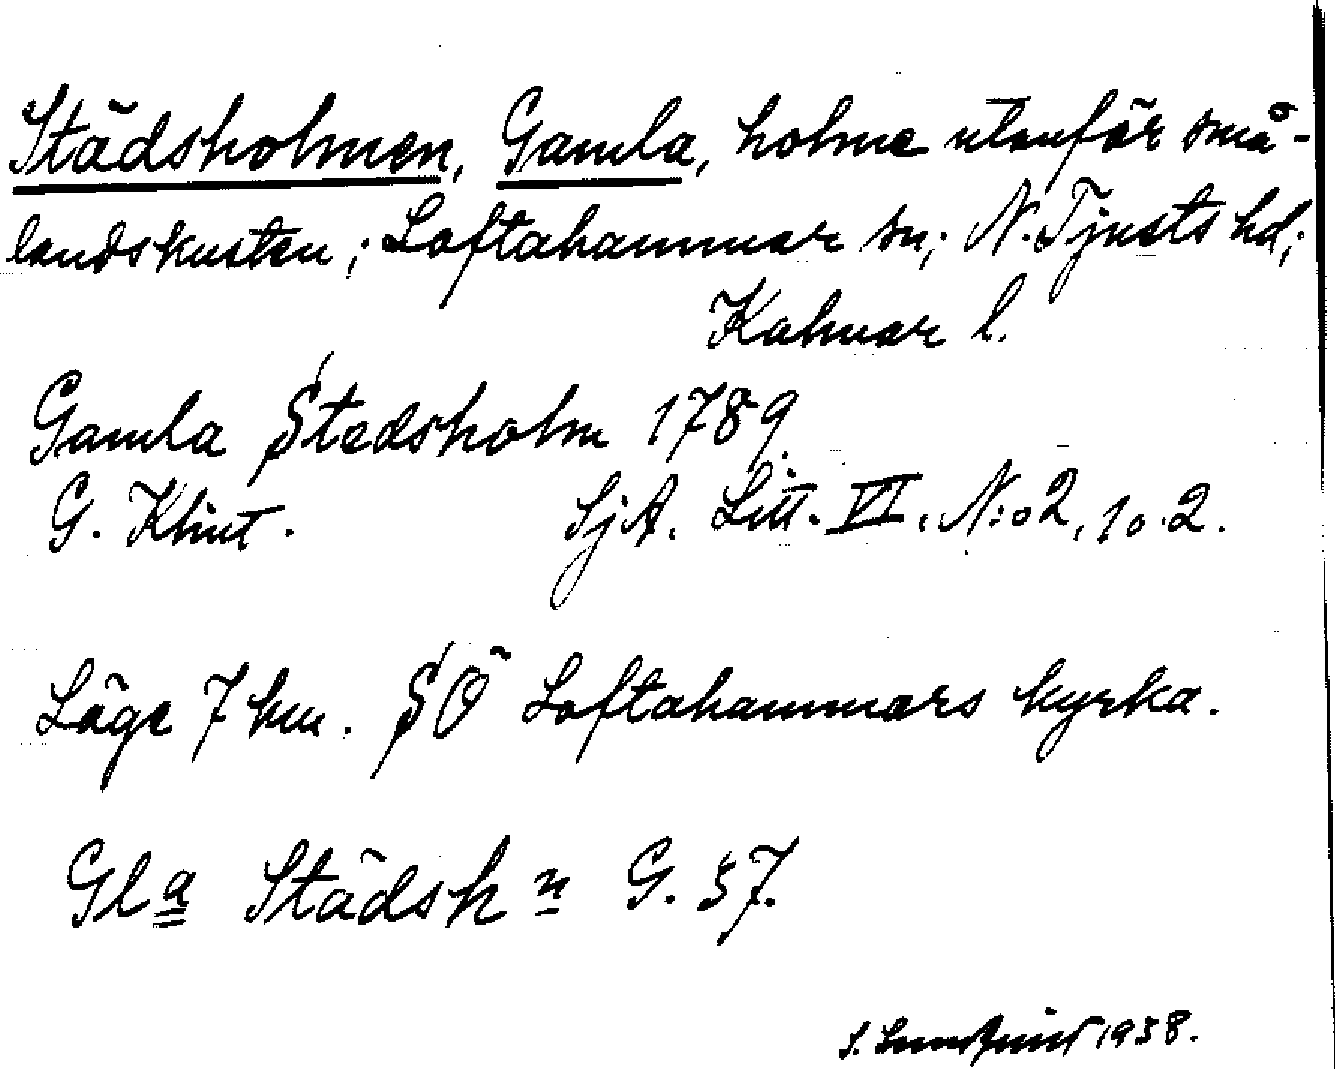 Städsholmen, Gamla, holme utanför små-
landskusten; Loftahammar sn; N. Tjusts hd;
Kalmar l.
Gamla Stedsholm 1789
G. Klint. SjA. Litt. VI. N:o 2, 1 o. 2.
Läge 7 km. SÖ Loftahammars kyrka.
Gla Städsh n G. 57.
S. 1938.